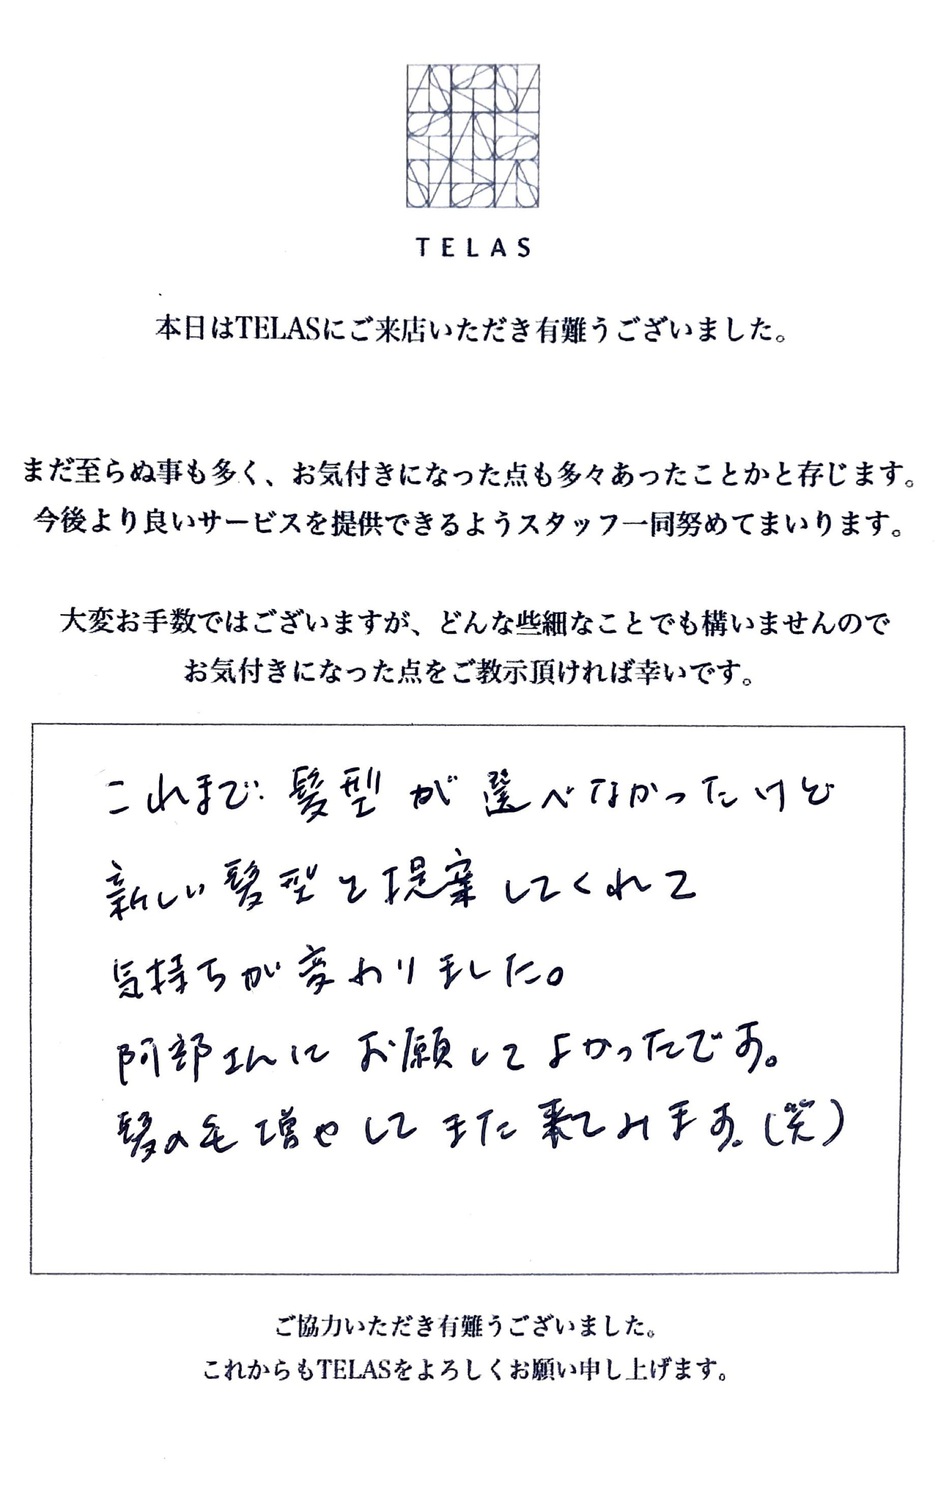 TELAS
本日はTELASにご来店いただき有難うございました。
まだ至らぬ事も多く、お気付きになった点も多々あったことかと存じます。
今後より良いサービスを提供できるようスタッフ一同努めてまいります。
大変お手数ではございますが、どんな些細なことでも構いませんので
お気付きになった点をご教示頂ければ幸いです。
これまで髪型が選べなかったけど
新しい髪型を提案してくれて
気持ちが変わりました。
阿部さんにお願いしてよかったです。
髪の毛増やしてまた来てみます。(笑)
ご協力いただき有難うございました。
これからもTELASをよろしくお願い申し上げます。